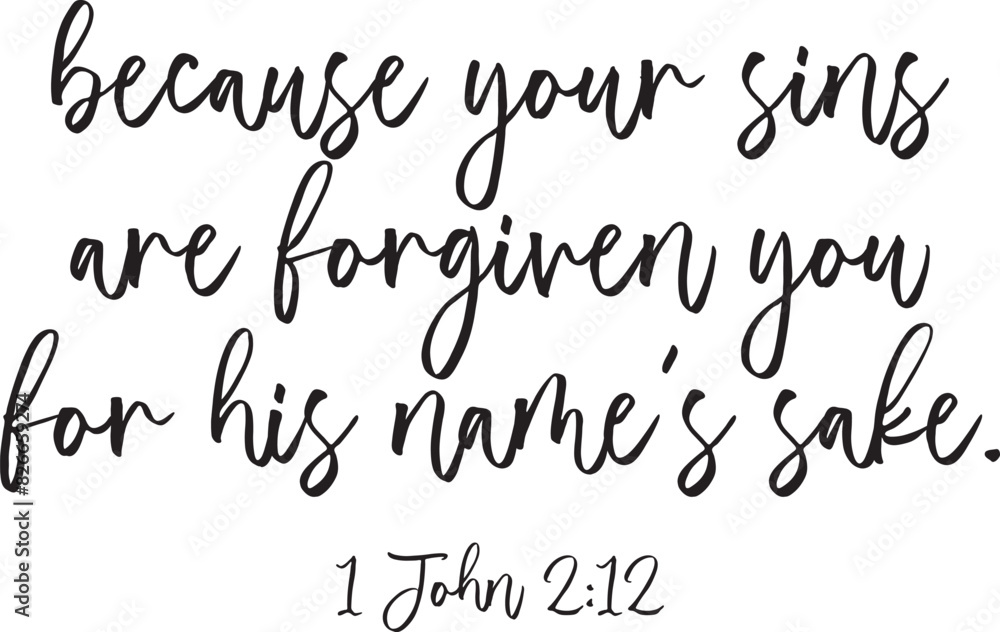 because your sins
are forgiven you
for his name's sake.
1 John 2:12
Adobe Stock | #826639274